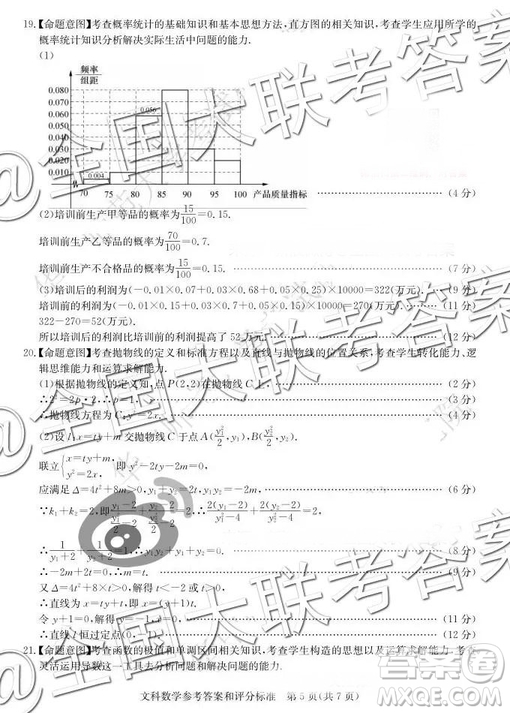 19.【命题意图】考查概率统计的基础知识和基本思想方法,直方图的相关知识,考查学生应用所学的
概率统计知识分析解决实际生活中问题的能力.
(1)
频率
组距
0.080
0.070
0.060
0.056
0.050
0.040
0.030
0.020
0.010
0.004
70 75 80 85 90 95 100 产品质量指标
(4分)
(2)培训前生产甲等品的概率为15/100=0.15.
培训前生产乙等品的概率为70/100=0.7.
培训前生产不合格品的概率为15/100=0.15. (7分)
(3)培训后的利润(-0.01×0.07+0.03×0.68+0.05×0.25)×10000=322(万元). (9分)
培训前的利润为(-0.01×0.15+0.03×0.7+0.05×0.15)×10000=270(万元). (11分)
322-270=52(万元).
所以培训后的利润比培训前的利润提高了52万元. (12分)
20.【命题意图】考查抛物线的定义和标准方程以及直线与抛物线的位置关系,考查学生转化能力、逻
辑思维能力和运算求解能力.
(1)根据抛物线的定义知,点P(2,2)在抛物线C上, (2分)
∴2²=2p·2,∴p=1, (3分)
∴抛物线方程为C:y²=2x. (4分)
(2)设l:x=ty+m交抛物线C于点A(y₁²/2,y₁),B(y₂²/2,y₂).
联立{x=ty+m, y²=2x. 即y²-2ty-2m=0,
应满足Δ=4t²+8m>0,y₁+y₂=2t,y₁y₂=-2m. (6分)
∵k₁+k₂=2,即
∴ (8分)
∴-2m+2t=0,∴m=t. (9分)
又Δ=4t²+8×t>0,解得t<-2或t>0,
∴直线为x=ty+t,即x=(y+1)t.
令y+1=0,解得y=-1,x=0. (11分)
∴直线l恒过定点 (12分)
21.【命题意图】考查函数的极值和单调区间相关知识,考查学生构造的思想以及运算求解能力,考
灵活运用导数这一工具去分析问题和解决问题的能力.
文科数学参考答案和评分标准 第5页(共7页)
@全国大联考答案
@全国大联考答案